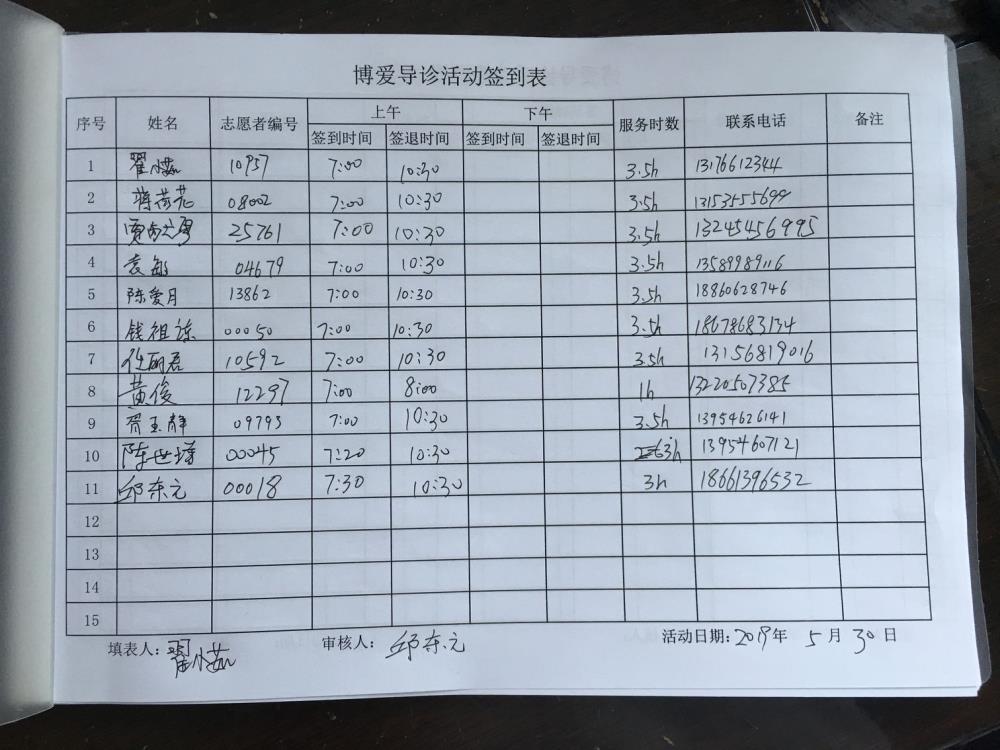 博爱导诊活动签到表
序号 姓名 志愿者编号 上午 下午 服务时数 联系电话 备注
签到时间 签退时间 签到时间 签退时间
1 翟小茹 10957 7:00 10:30 3.5h 13176612344
2 蒋荷花 08002 7:00 10:30 3.5h 13153555699
3 25761 7:00 10:30 3.5h 13245456995
4 袁敏 04679 7:00 10:30 3.5h 13589989116
5 陈爱月 13862 7:00 10:30 3.5h 18860628746
6 钱祖 00050 7:00 10:30 3.5h 18678683134
7 任丽君 10592 7:00 10:30 3.5h 13156819016
8 黄俊 12297 7:00 8:00 1h 13220507385
9 胥玉静 09793 7:00 10:30 3.5h 13954626141
10 陈世 00045 7:20 10:30 3h 13954607121
11 邱东元 00018 7:30 10:30 3h 18661396532
12
13
14
15
填表人：翟小茹 审核人：邱东元 活动日期：2019年 5 月 30 日